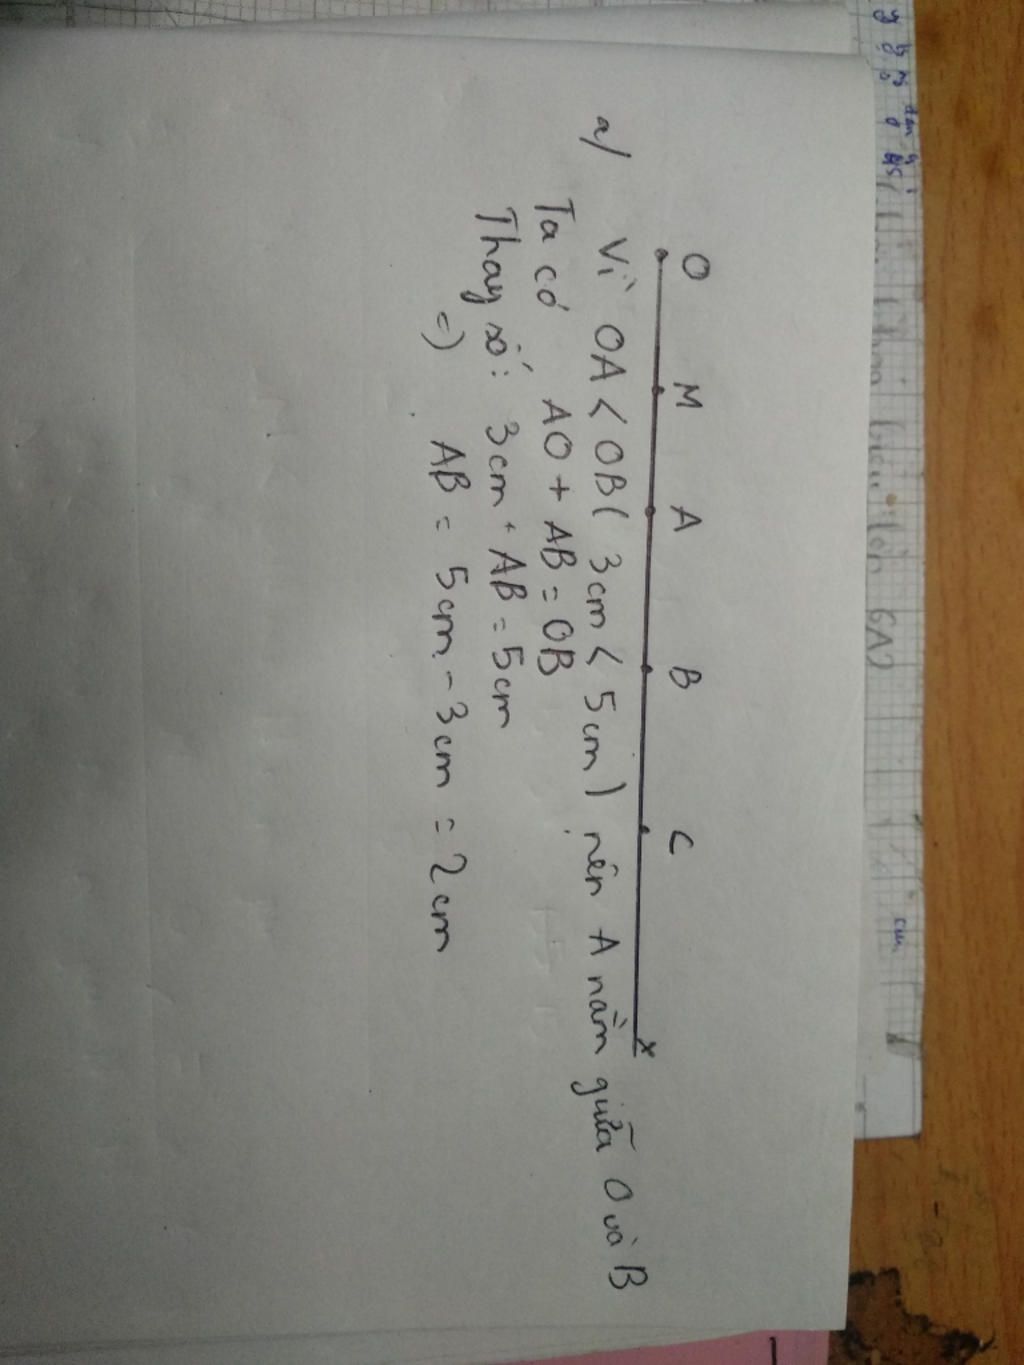 O M A B C x
a/ Vì OA < OB ( 3cm < 5cm ) nên A nằm giữa O và B
Ta có AO + AB = OB
Thay số: 3cm + AB = 5cm
=) AB = 5cm - 3cm = 2cm